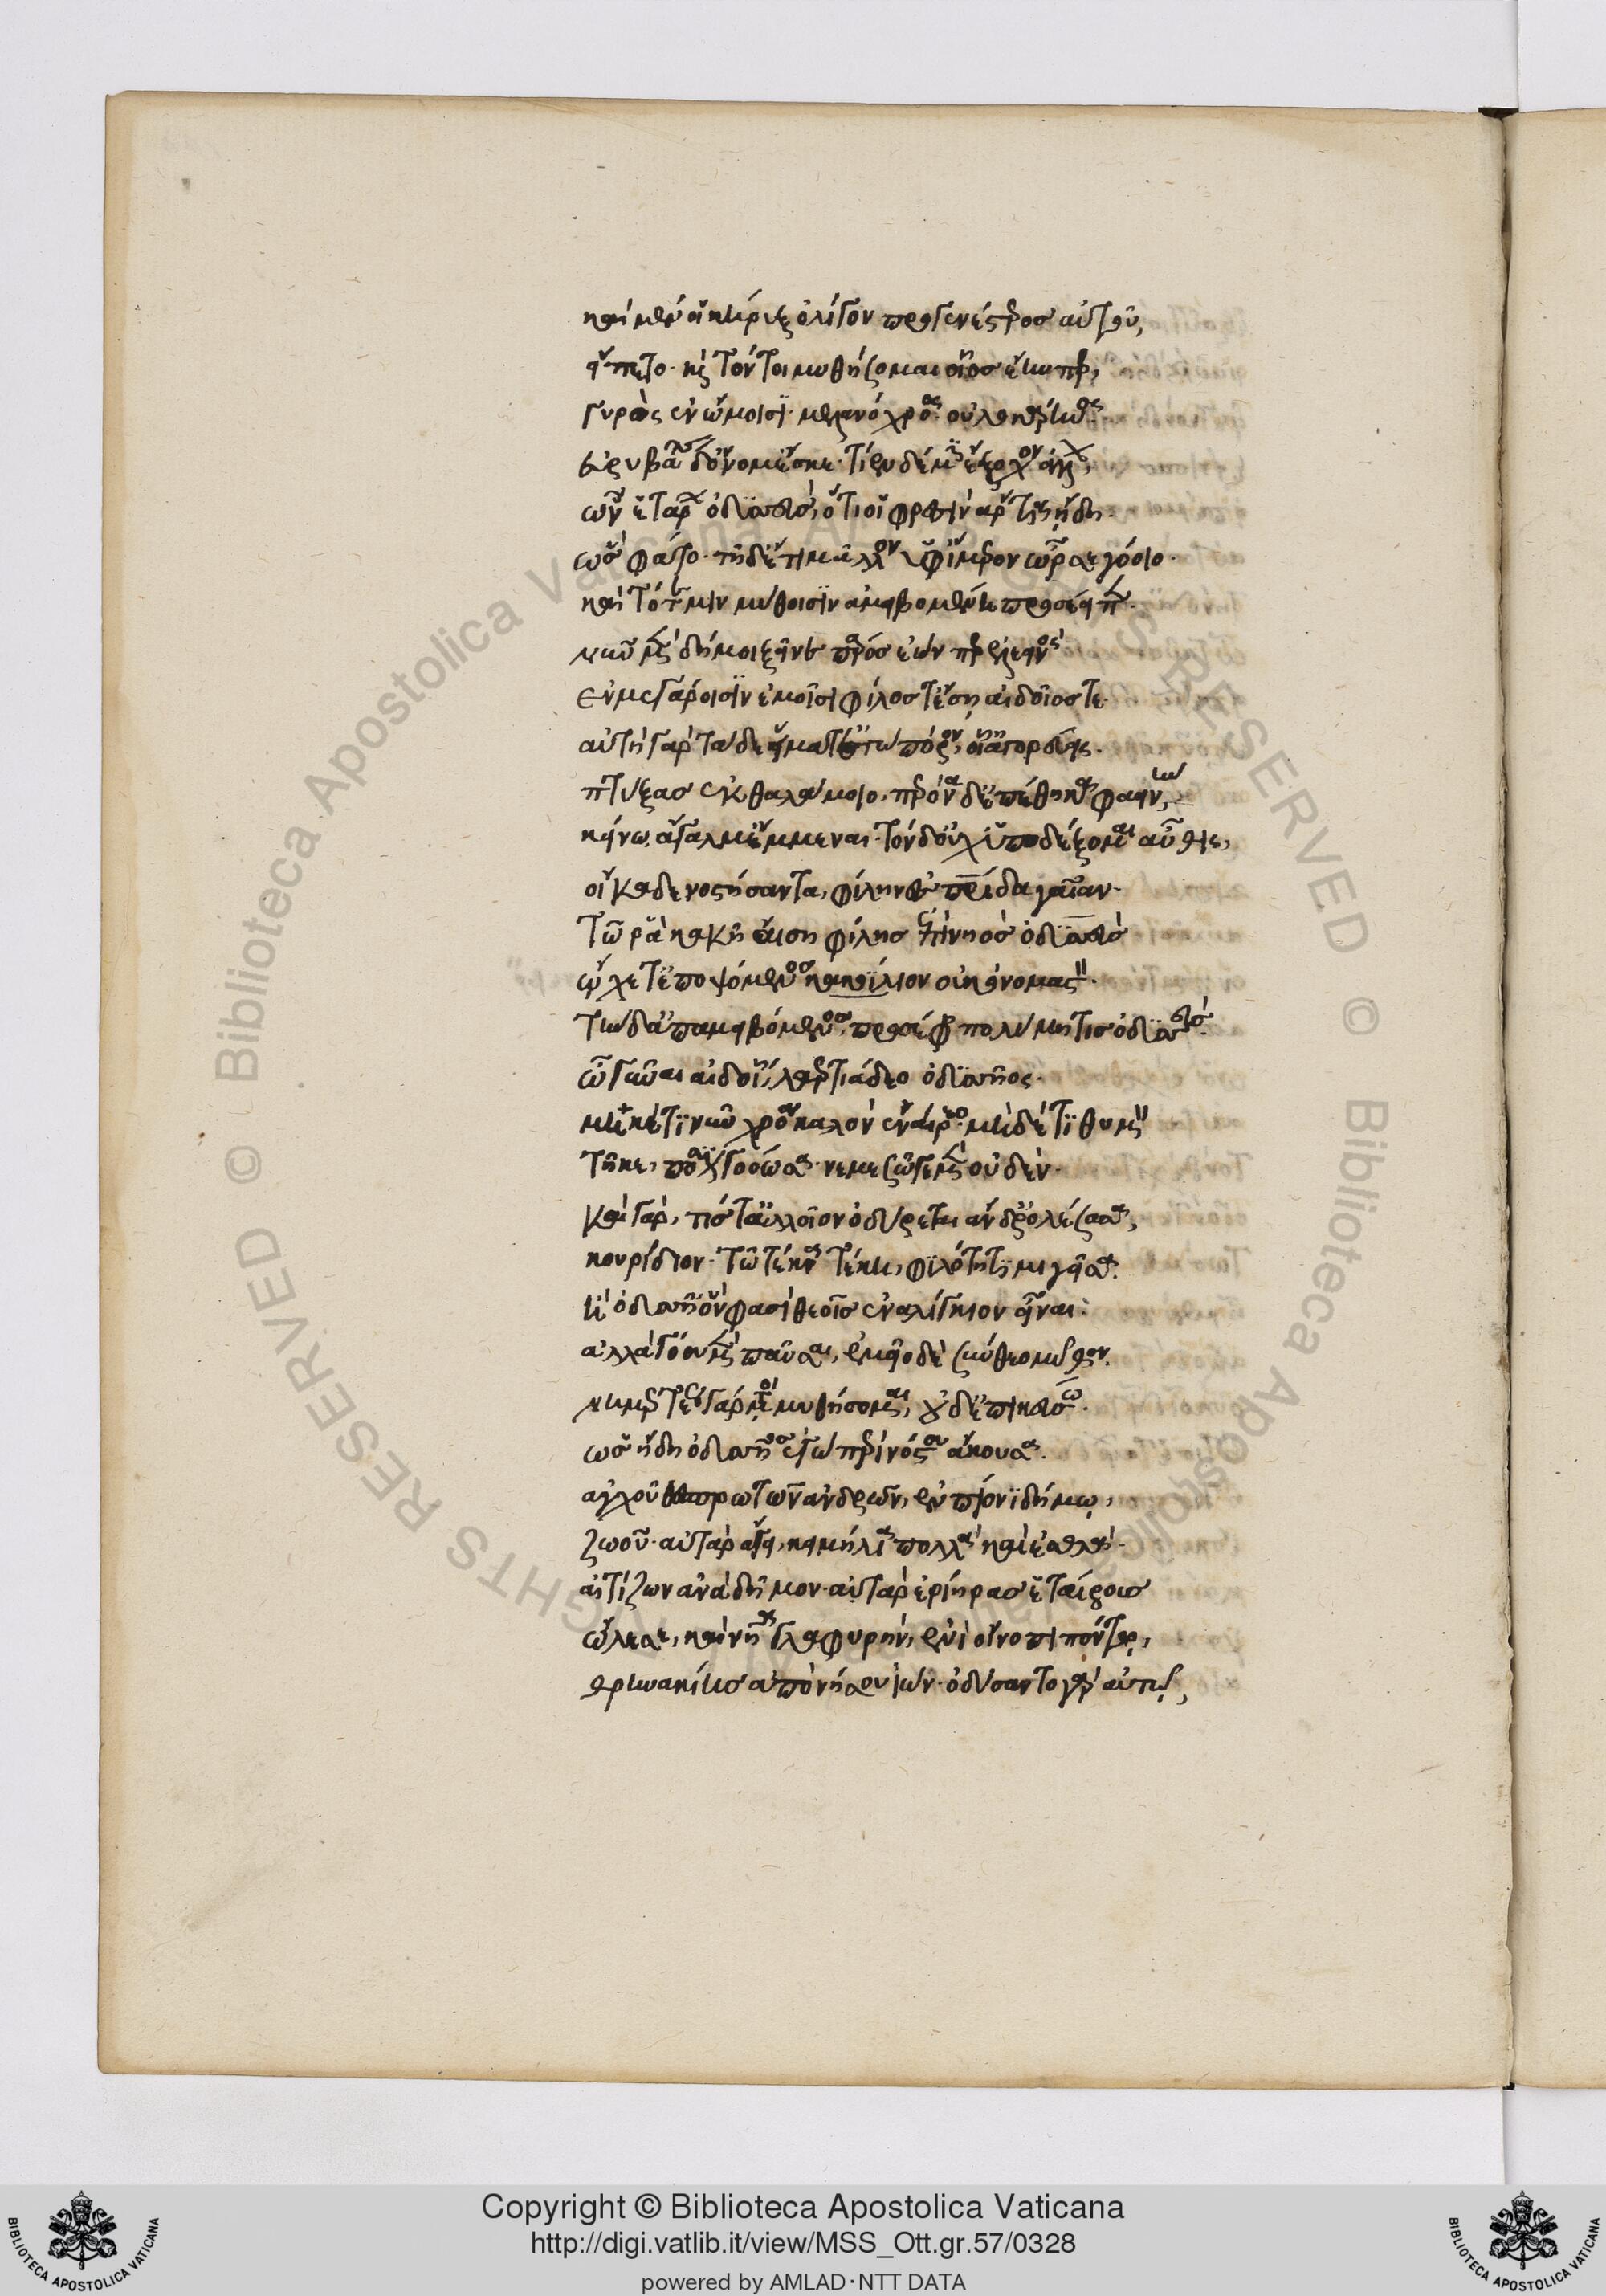 καὶ μέν οἱ κῆρυξ ὀλίγον προγενέστερος αὐτοῦ,
εἵπετο· καὶ τόν τοι μυθήσομαι οἷος ἔην περ,
γυρὸς ἐν ὤμοισι· μελανόχροος· οὐλοκάρηνος·
εὐρυβάτης δ' ὄνομ' ἔσκε· τίεν δέ μιν ἔξοχον ἄλλων,
ὧν ἑτάρων ὀδυσεύς, ὅτι οἱ φρεσὶν ἄρτια ᾔδη.
ὣς φάτο· τῇ δ' ἔτι μᾶλλον ὑφ' ἵμερον ὦρσε γόοιο·
καὶ τότε μιν μύθοισιν ἀμειβομένη προσέειπε.
νῦν μὲν δή μοι ξεῖνε πάρος ἐὼν περ ἐλεεινὸς
ἐν μεγάροισιν ἐμοῖσι φίλος τ' ἔσῃ αἰδοῖός τε·
αὐτὴ γὰρ τάδε εἵματ' ἐγὼ πόρον, οἷ' ἀγορεύεις.
πτύξασ' ἐκ θαλάμοιο, περόνην δ' ἐπέθηκα φαεινήν,
κείνῳ ἄγαλμ' ἔμμεναι· τὸν δ' οὐχ ὑποδέξομαι αὖθις,
οἴκαδε νοστήσαντα, φίλην ἐς πατρίδα γαῖαν·
τῷ ῥα κακῇ αἴσῃ φίλης ἐπὶ νηὸς ὀδυσεὺς
ᾤχετ' ἐποψόμενος κακοΐλιον οὐκ ὀνομαστήν.
τὴν δ' ἀπαμειβόμενος προσέφη πολύμητις ὀδυσεύς.
ὦ γύναι αἰδοίη, λαερτιάδεω ὀδυσῆος·
μηκέτι νῦν χρόα καλὸν ἐναίρεο· μηδέ τι θυμὸν
τῆκε, πόσιν γοόωσα· νεμεσσῶ γε μὲν οὐδέν·
καὶ γάρ, τίς τ' ἀλλοῖον ὀδύρεται ἄνδρ' ὀλέσασα,
κουρίδιον· τῷ τέκνα τέκῃ, φιλότητι μιγεῖσα.
ἢ ὀδυσῆ' ὅν φασὶ θεοῖς ἐναλίγκιον εἶναι·
ἀλλὰ γόου μὲν παῦσαι, ἐμεῖο δὲ σύνθεο μῦθον.
νημερτέως γάρ τοι μυθήσομαι, οὐδ' ἐπικεύσω.
ὡς ἤδη ὀδυσῆος ἐγὼ περὶ νόστου ἄκουσα.
ἀγχοῦ θεσπρωτῶν ἀνδρῶν, ἐν πίονι δήμῳ,
ζωοῦ· αὐτὰρ ἄγει, κειμήλια πολλὰ καὶ ἐσθλά·
αἰτίζων ἀνὰ δῆμον· αὐτὰρ ἐρίηρας ἑταίρους
ὤλεσε, καὶ νῆα γλαφυρὴν, ἐνὶ οἴνοπι πόντῳ,
θρινακίης ἀπὸ νήσου ἰών· ὀδύσαντο γὰρ αὐτῷ,
© Biblioteca Apostolica Vaticana
RIGHTS RESERVED
Copyright © Biblioteca Apostolica Vaticana
http://digi.vatlib.it/view/MSS_Ott.gr.57/0328
powered by AMLAD·NTT DATA
BIBLIOTECA APOSTOLICA VATICANA
BIBLIOTECA APOSTOLICA VATICANA